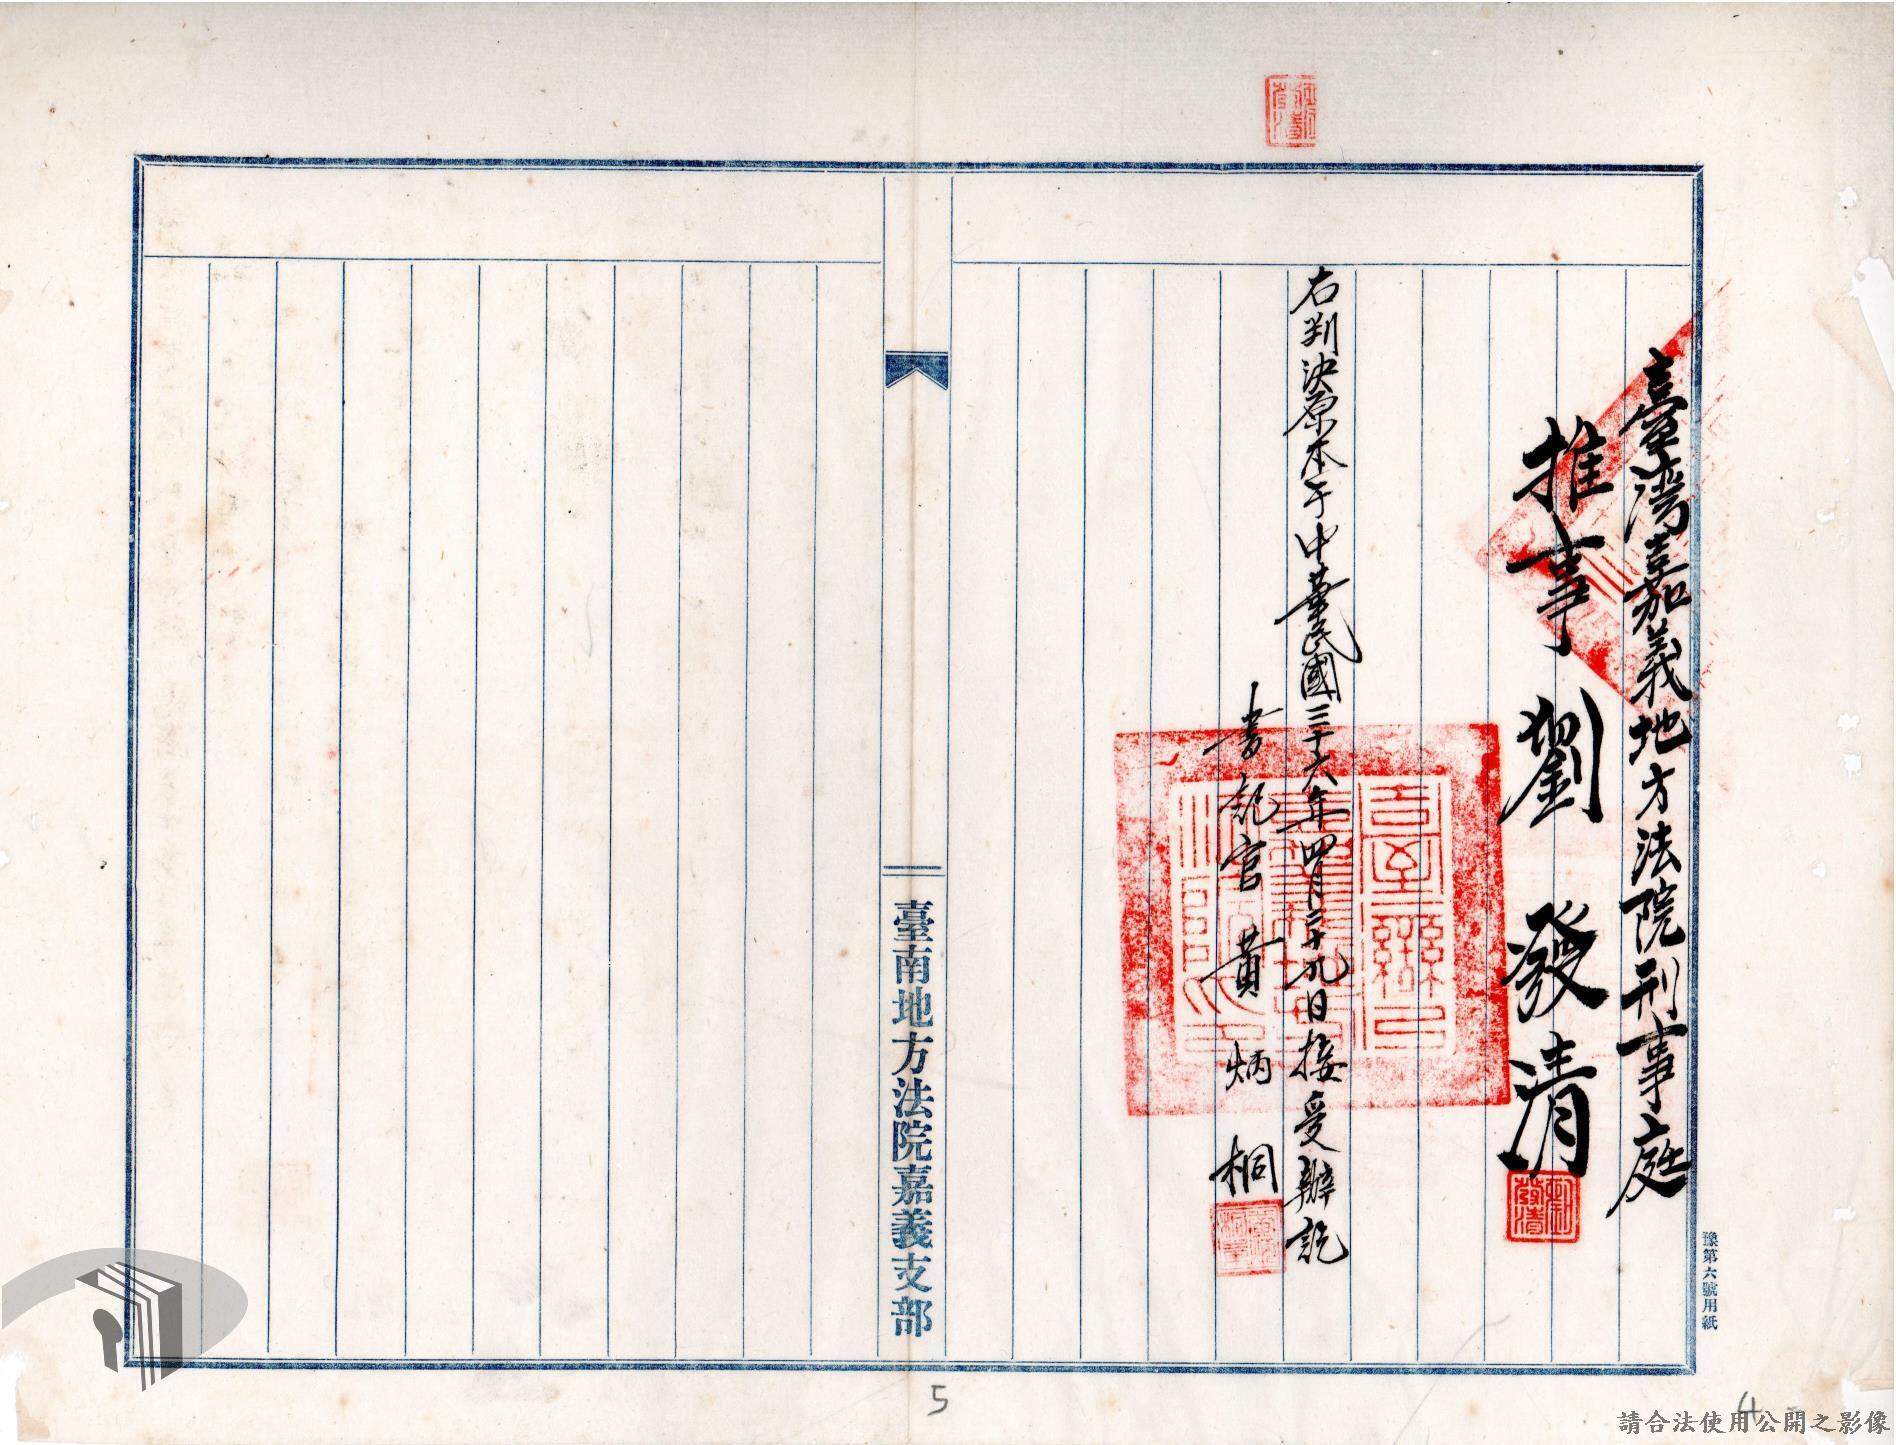 臺灣嘉義地方法院刑事庭
推事 劉發清
右判決原本于中華民國三十六年四月二十九日接受辦訖
書記官 黃炳桐
臺南地方法院嘉義支部
豫第六號用紙
5
4
請合法使用公開之影像